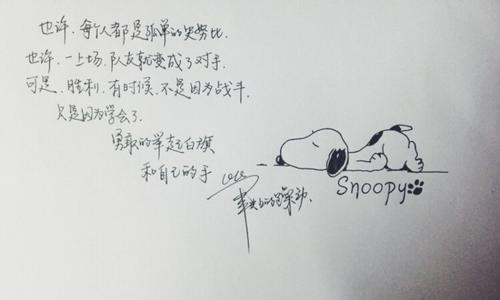 也许.每个人都是孤单的史努比.
也许.一上场.队友就变成了对手.
可是.胜利.有时候.不是因为战斗.
只是因为学会了.
勇敢的举起白旗
和自己的手
Snoopy